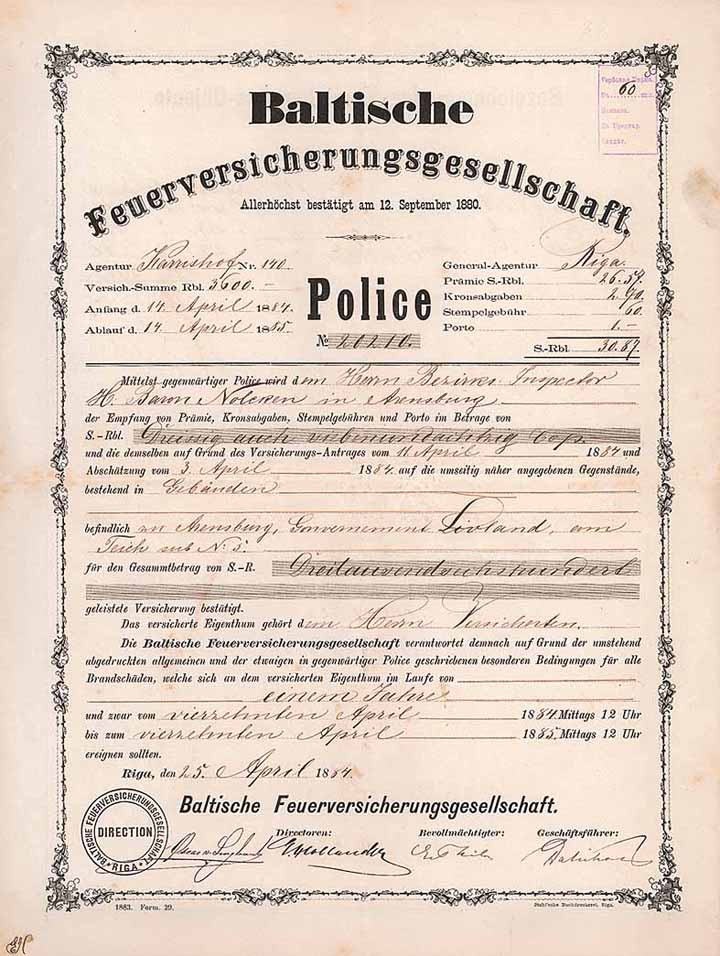 Baltische
Feuerversicherungsgesellschaft.
Allerhöchst bestätigt am 12. September 1880.
60
Agentur Karrishof Nr. 140.
Versich.-Summe Rbl. 3600.-
Anfang d. 14 April 1884
Ablauf d. 14 April 1885
Police
No 20210.
General-Agentur Riga.
Prämie S.-Rbl. 26.57.
Kronsabgaben 2.70.
Stempelgebühr 60.
Porto 1.-
S.-Rbl. 30.87.
Mittelst gegenwärtiger Police wird dem Herrn Bezirks-Inspector
H. Baron Nolcken in Arensburg
der Empfang von Prämie, Kronsabgaben, Stempelgebühren und Porto im Betrage von
S.-Rbl. Dreissig auch siebenundachtzig Cop.
und die demselben auf Grund des Versicherungs-Antrages vom 11 April 1884 und
Abschätzung vom 3. April 1884 auf die umseitig näher angegebenen Gegenstände,
bestehend in Gebäuden
befindlich zu Arensburg, Gouvernement Livland, am
Teich sub No 5.
für den Gesammtbetrag von S.-R. Dreitausendsechshundert
geleistete Versicherung bestätigt.
Das versicherte Eigenthum gehört dem Herrn Versicherten.
Die Baltische Feuerversicherungsgesellschaft verantwortet demnach auf Grund der umstehend
abgedruckten allgemeinen und der etwaigen in gegenwärtiger Police geschriebenen besonderen Bedingungen für alle
Brandschäden, welche sich an dem versicherten Eigenthum im Laufe von
einem Jahre
und zwar vom vierzehnten April 1884 Mittags 12 Uhr
bis zum vierzehnten April 1885. Mittags 12 Uhr
ereignen sollten.
Riga, den 25. April 1884.
Baltische Feuerversicherungsgesellschaft.
BALTISCHE FEUERVERSICHERUNGSGESELLSCHAFT
DIRECTION
RIGA
Directoren:
Bevollmächtigter:
Geschäftsführer:
Hollander
1883. Form. 29.
Buchdruckerei, Riga.